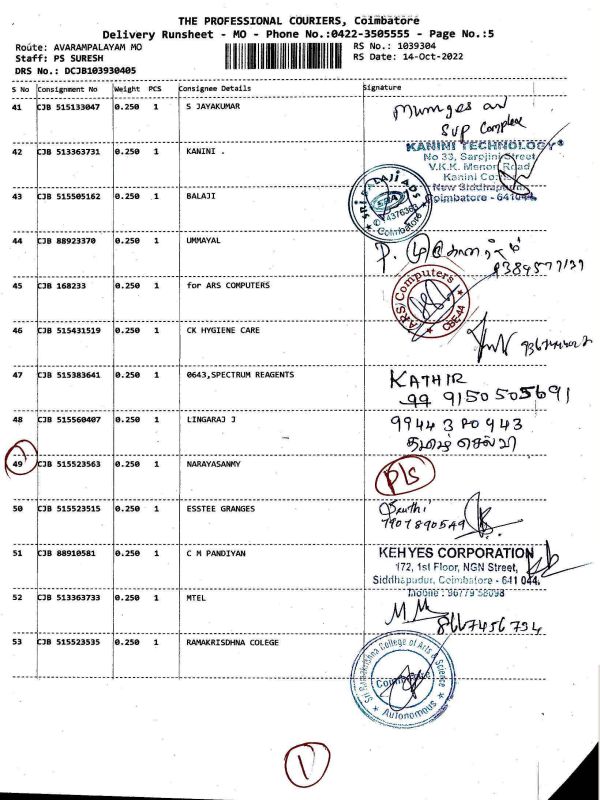 THE PROFESSIONAL COURIERS, Coimbatore
Delivery Runsheet - MO - Phone No.:0422-3505555 - Page No.:5
Route: AVARAMPALAYAM MO
RS No.: 1039304
Staff: PS SURESH
RS Date: 14-Oct-2022
DRS No.: DCJB103930405
S No Consignment No Weight PCS Consignee Details Signature
41 CJB 515133047 0.250 1 S JAYAKUMAR
SVP Complex
42 CJB 513363731 0.250 1 KANINI .
KANINI TECHNOLOGY
No 33, Sarojini Street,
V.K.K. Menon Road,
New Siddhapudur,
Coimbatore - 641044.
43 CJB 515505162 0.250 1 BALAJI
SRI BALAJI ADS
Coimbatore
44 CJB 88923370 0.250 1 UMMAYAL
P.
45 CJB 168233 0.250 1 for ARS COMPUTERS
ARS Computers
CBE-44
46 CJB 515431519 0.250 1 CK HYGIENE CARE
47 CJB 515383641 0.250 1 0643,SPECTRUM REAGENTS
KATHIR
99 9150505691
48 CJB 515560407 0.250 1 LINGARAJ J
தமிழ் செல்வி
49 CJB 515523563 0.250 1 NARAYASANMY
PLS
50 CJB 515523515 0.250 1 ESSTEE GRANGES
Sruthi
7907890549
51 CJB 88910581 0.250 1 C M PANDIYAN
KEHYES CORPORATION
172, 1st Floor, NGN Street,
Siddhapudur, Coimbatore - 641 044.
Mobile : 96779 58098
52 CJB 513363733 0.250 1 MTEL
8667456734
53 CJB 515523535 0.250 1 RAMAKRISDHNA COLEGE
Sri Ramakrishna College of Arts & Science
Coimbatore
Autonomous
1